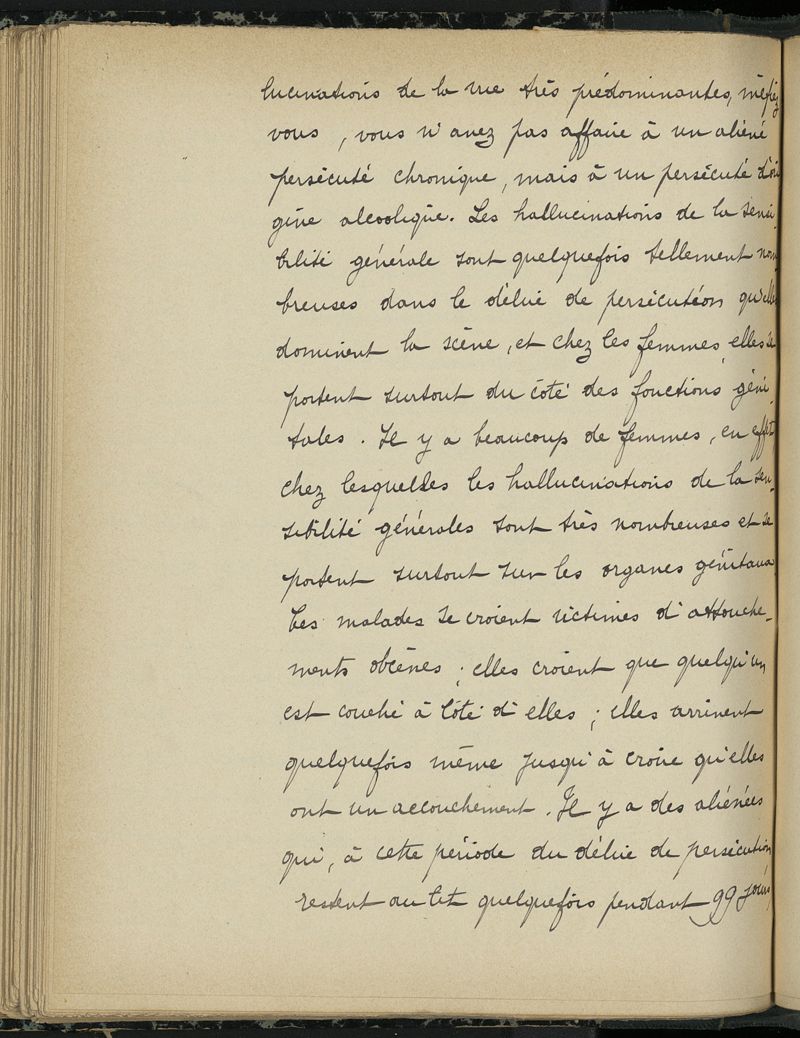 lucinations de la vue très prédominantes, méfiez
vous, vous n'avez pas affaire à un aliéné
persécuté chronique, mais à un persécuté d'ori
gine alcoolique. Les hallucinations de la sensi.
bilité générale sont quelquefois tellement nom
breuses dans le délire de persécution qu'elles
dominent la scène, et chez les femmes, elles se
portent surtout du côté des fonctions géni.
tales. Il y a beaucoup de femmes, en effet,
chez lesquelles les hallucinations de la sen.
sibilité générales sont très nombreuses et se
portent surtout sur les organes génitaux.
Ces malades se croient victimes d'attouche-
ments obcènes; elles croient que quelqu'un
est couché à côté d'elles; elles arrivent
quelquefois même jusqu'à croire qu'elles
ont un accouchement. Il y a des aliénées
qui, à cette période du délire de persécution
restent au lit quelquefois pendant 99 jours,